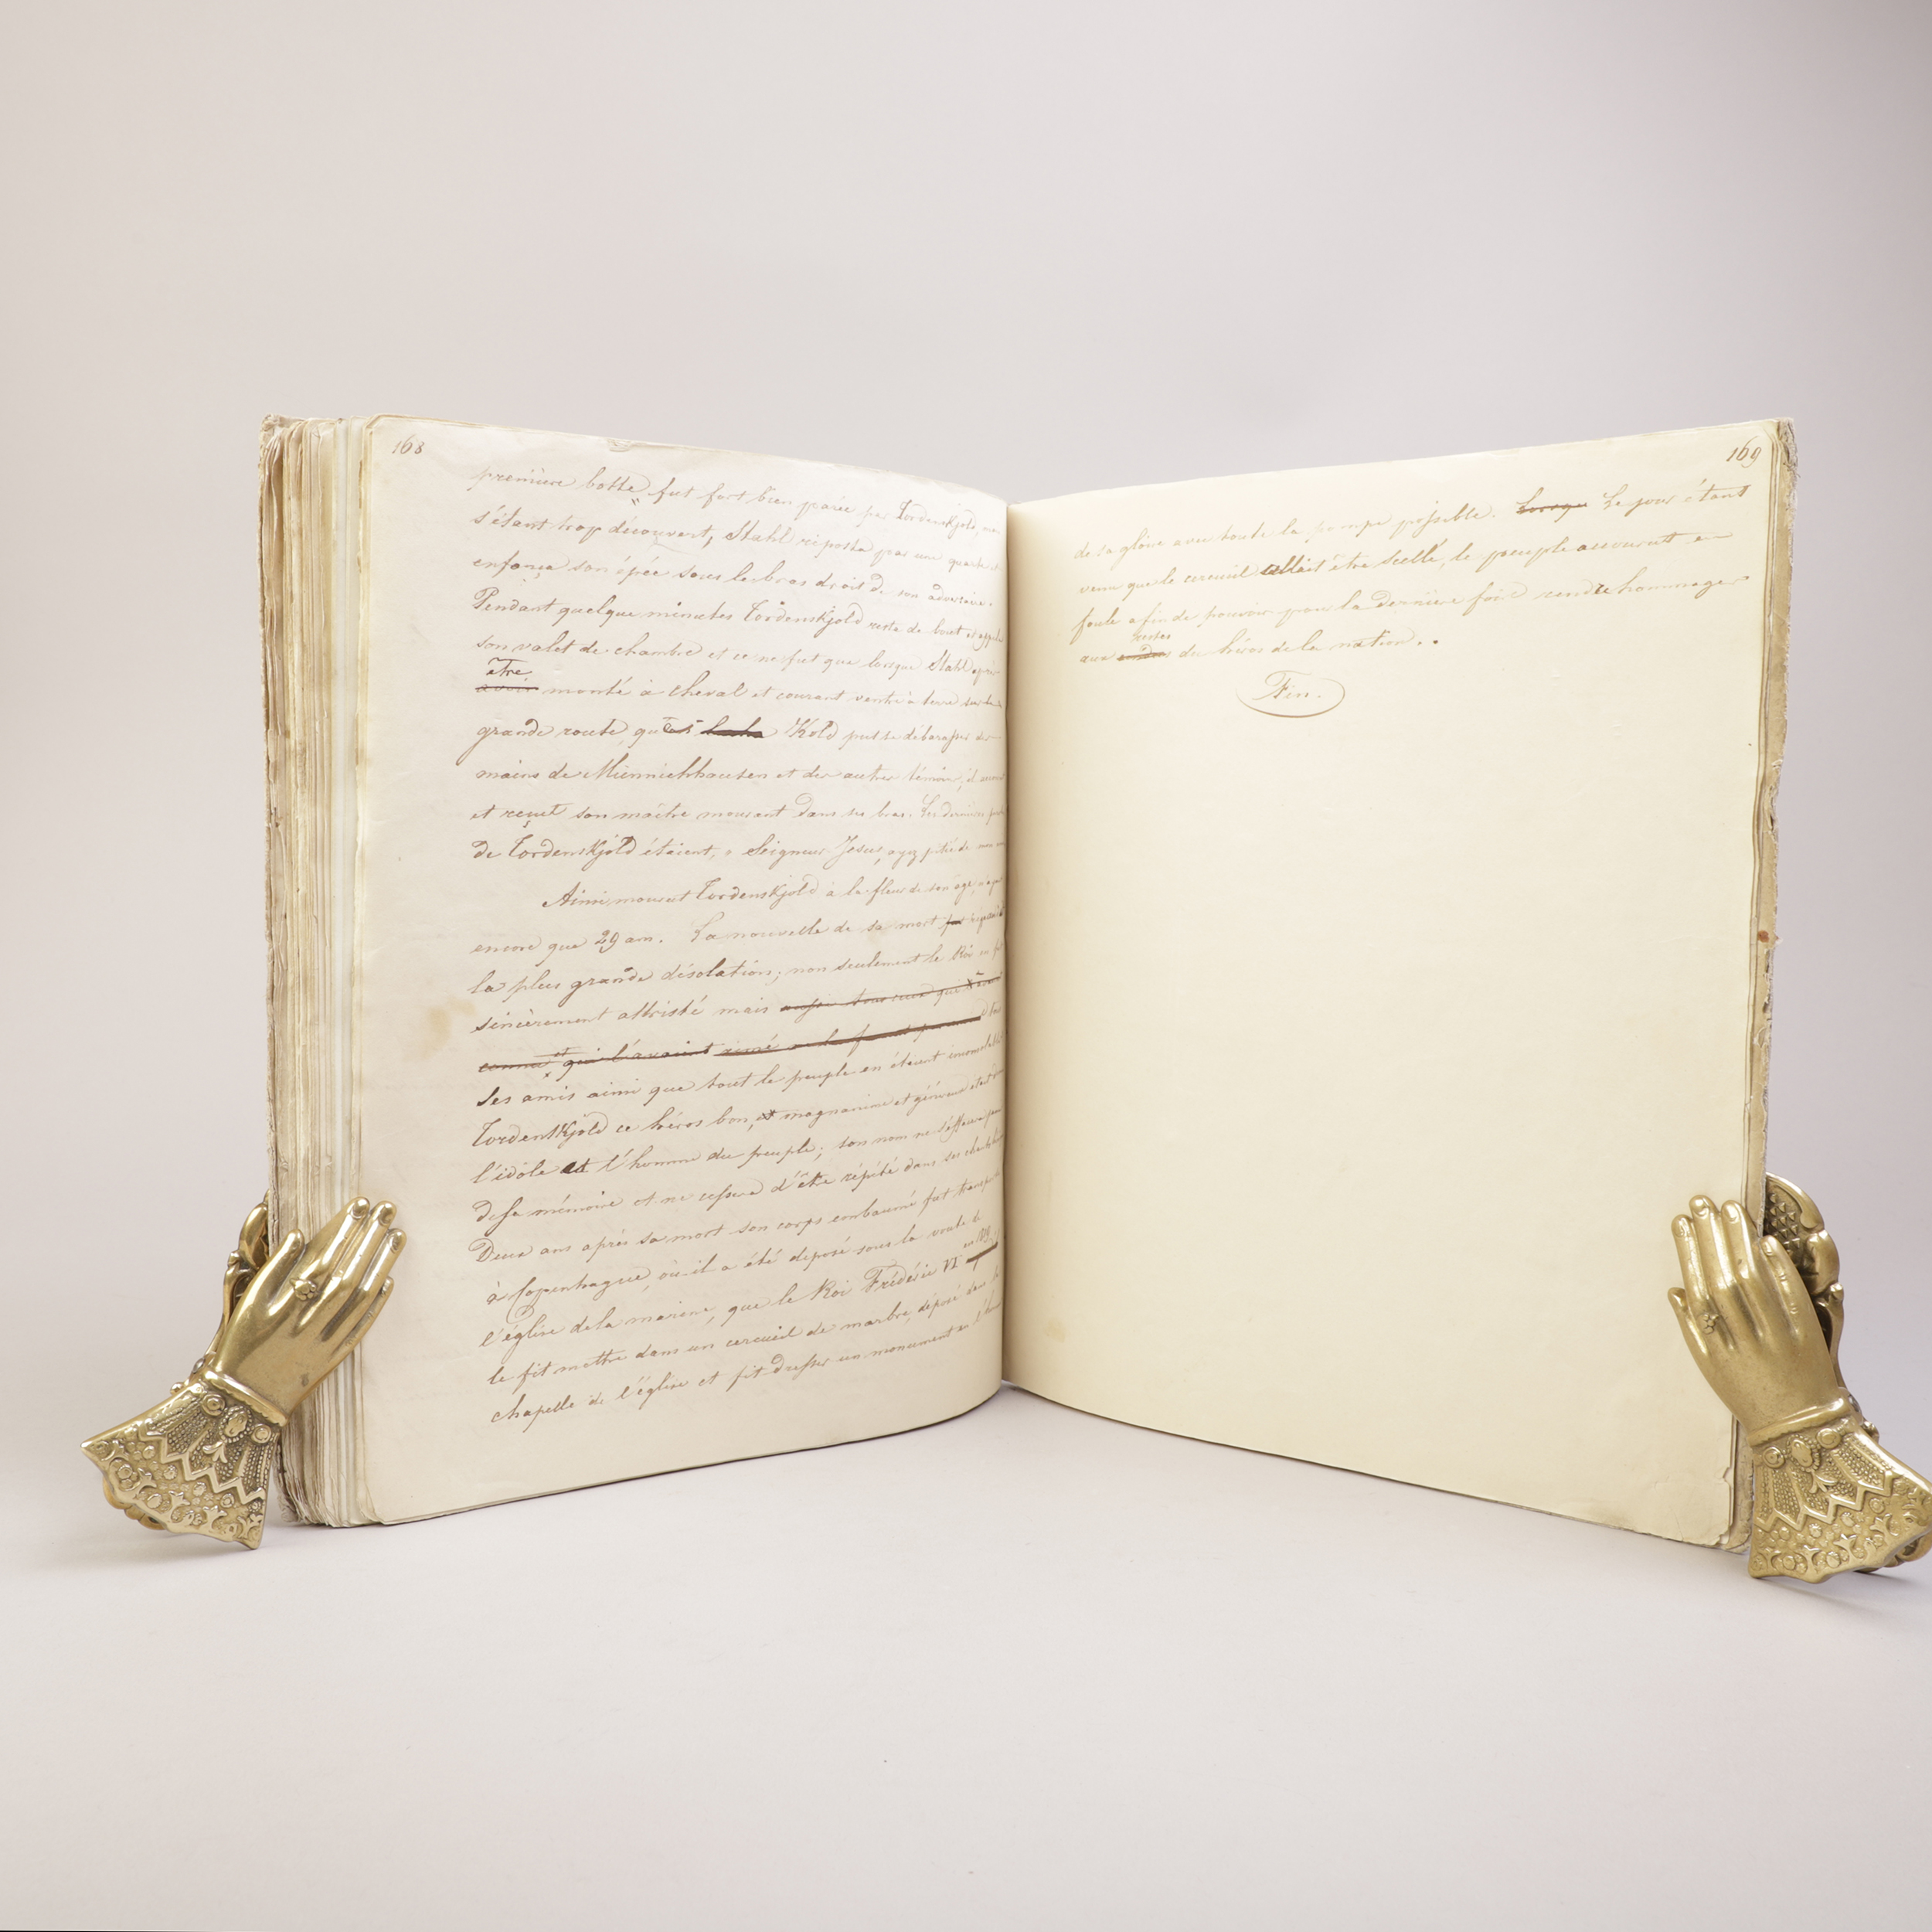 168
première botte fut fort bien parée par Tordenskjold, mais
s'étant trop découvert, Stahl riposta par une quarte et
enfonça son épée sous le bras droit de son adversaire.
Pendant quelque minutes Tordenskjold reste de bout et appela
son valet de chambre et ce ne fut que lorsque Stahl après
être
avoir monté à cheval et courant ventre à terre sur la
grande route, que Kold put se débarasser des
mains de Münnichhausen et des autres témoins, il accourut
et reçut son maître mourant dans ses bras. Les dernières paroles
de Tordenskjold étaient, o Seigneur Jesus, ayez pitié de mon
Ainsi mourut Tordenskjold à la fleur de son âge, n'ayant
encore que 29 ans. La nouvelle de sa mort
la plus grande désolation; non seulement le Roi en fut
sincèrement attristé mais aussi tous ceux qui
connu et qui l'avaient aimé
ses amis ainsi que tout le peuple en étaient inconsolables
Tordenskjold ce héros bon, et magnanime et généreux était
l'idole et l'homme du peuple; son nom ne s'effacera jamais
de sa mémoire et ne cessera d'être répété dans ses
Deux ans après sa mort son corps embaumé fut transporté
à Copenhague, où il a été deposé sous la voute de
l'église de la marine, que le Roi Frédéric VI
le fit mettre dans un cercueil de marbre, déposé dans la
chapelle de l'église et fit dresser un monument en
169
de sa gloire avec toute la pompe possible. Lorsque Le jour étant
venu que le cercueil allait être scellé, le peuple accourut en
foule afin de pouvoir pour la dernière fois rendre hommage
restes
aux cendres du héros de la nation..
Fin.